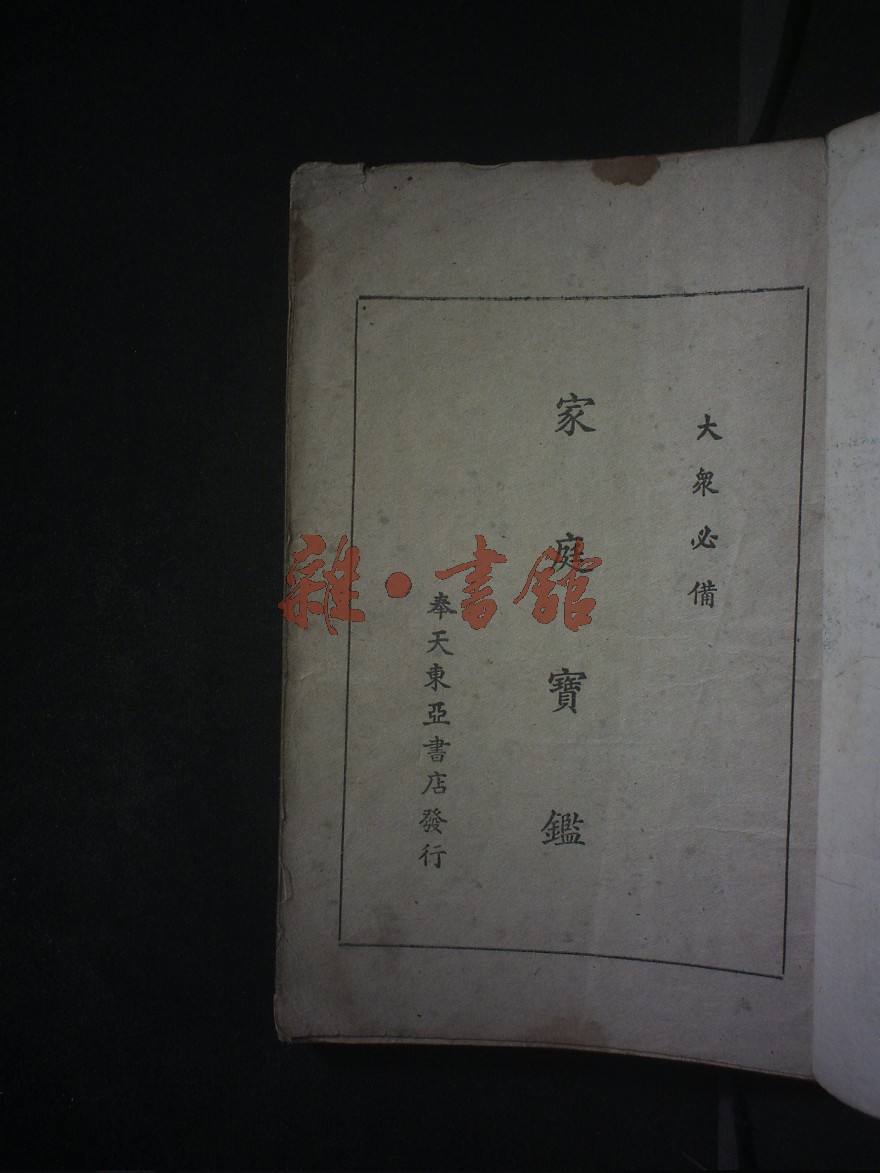 大衆必備
家庭寶鑑
奉天東亞書店發行
雜·書館